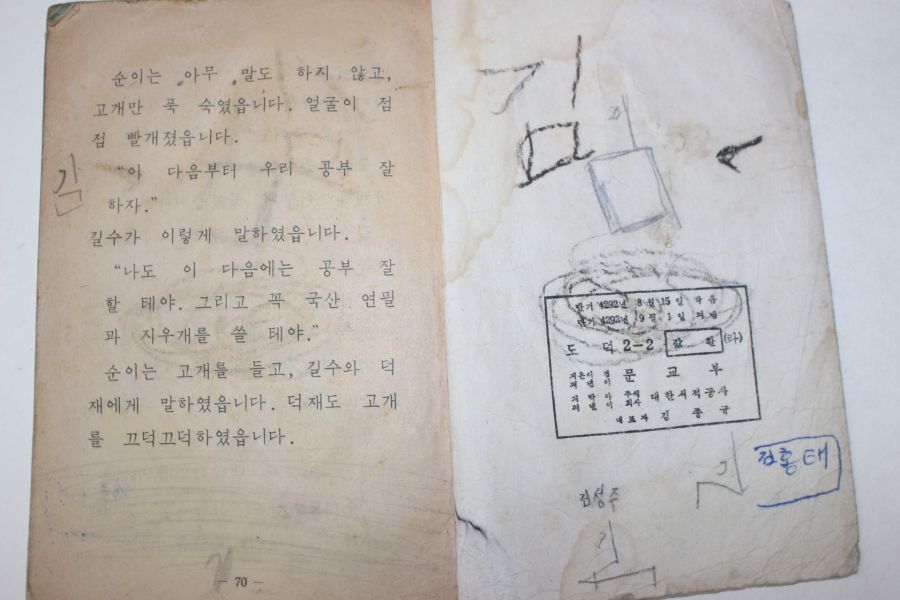 순이는 아무 말도 하지 않고,
고개만 푹 숙였읍니다. 얼굴이 점
점 빨개졌읍니다.
“이 다음부터 우리 공부 잘
하자.”
길수가 이렇게 말하였읍니다.
“나도 이 다음에는 공부 잘
할 테야. 그리고 꼭 국산 연필
과 지우개를 쓸 테야.”
순이는 고개를 들고, 길수와 덕
재에게 말하였읍니다. 덕재도 고개
를 끄덕끄덕하였읍니다.
— 70 —
김
김
단기 4292년 8월 15일 박음
단기 4293년 9월 1일 펴냄
도 덕 2-2 값 환 (타)
지은이 겸 펴낸이 문 교 부
겸 박아 펴낸이 주식 회사 대한서적공사
대표자 김 종
김홍태
김상주